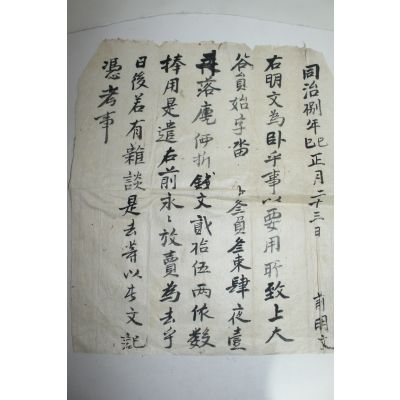 同治捌年己巳正月二十三日 前明文
右明文爲臥乎事以要用所致上大
谷員始字畓 卜 叄員叄束肆夜壹
斗落庫価折錢文貳拾伍两依數
捧用是遣右前永〻放賣爲去乎
日後若有雜談是去等以此文記
憑考事